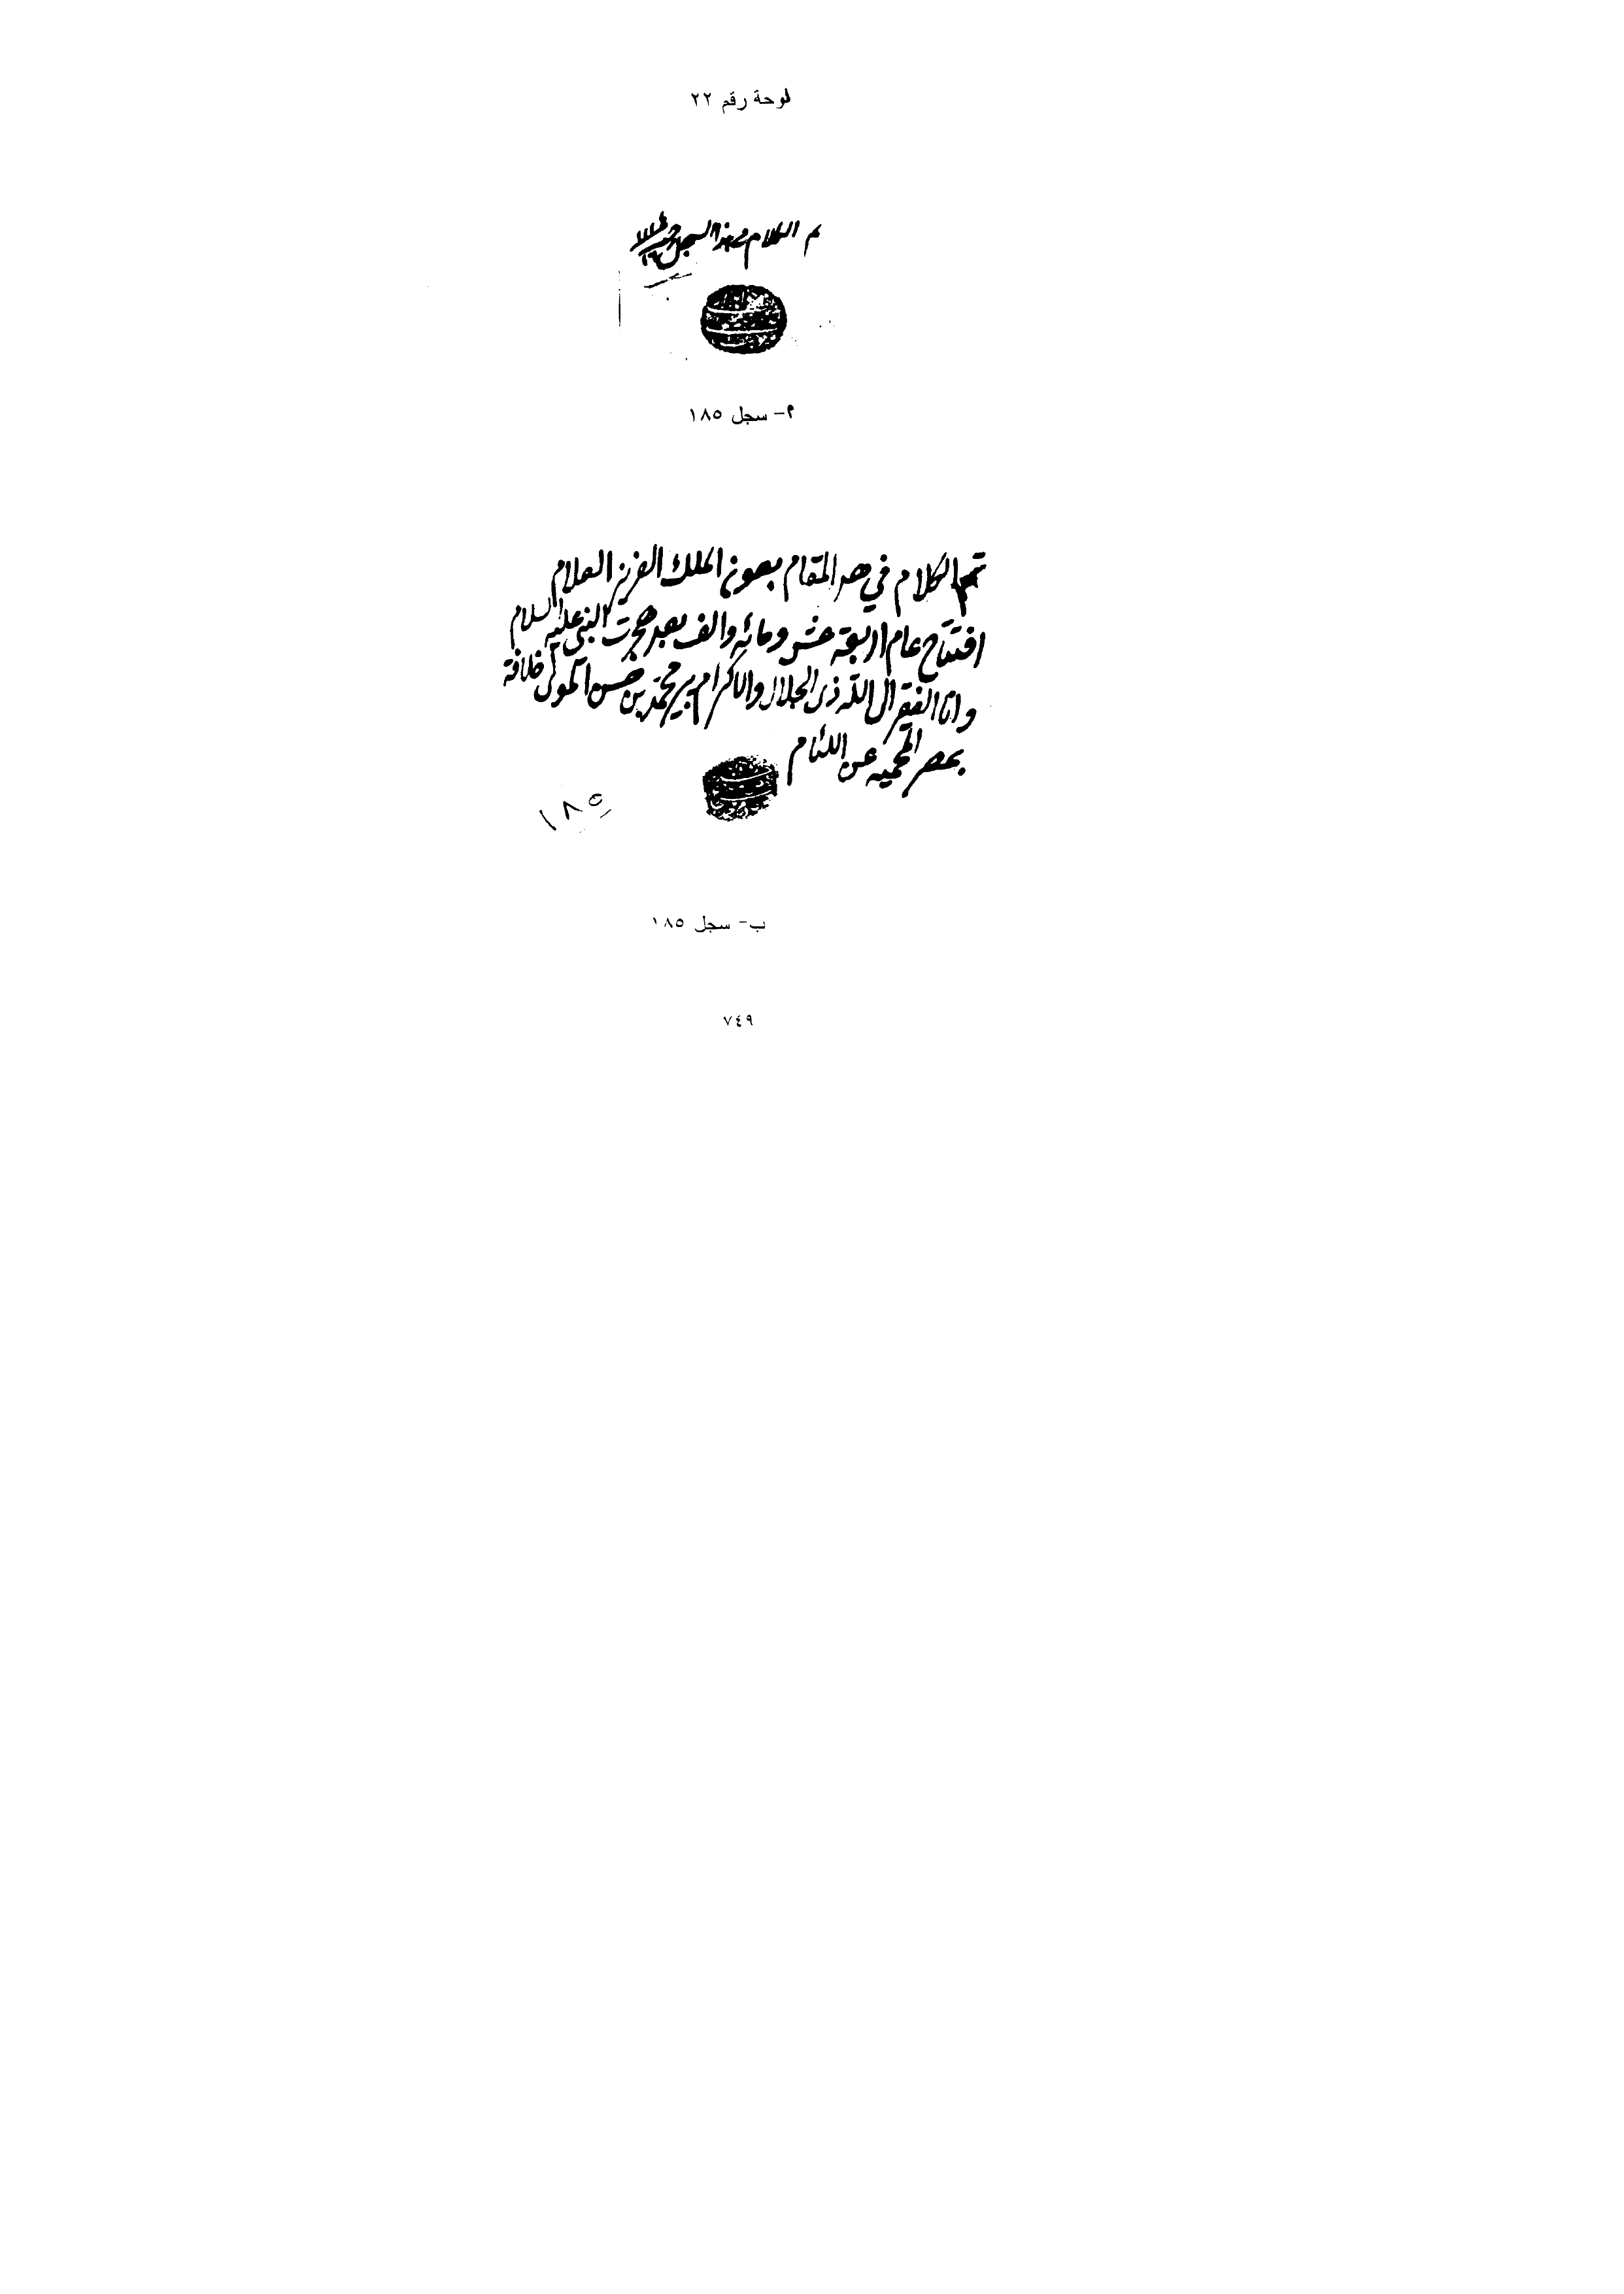 لوحة رقم ٢٢
تم الكلام في هذا السجل
أ- سجل ١٨٥
تم الكلام في هدا المقام بعون الملك العزيز العلام
افتتاح عام اربعة عشر ومائه والف بعد هجرت النبى عليه السلام
وانا الفقير الى الله ذى الجلال والاكرام پير محمد بن حسن المولى خلافة
بمصر المحميه عن اللئام
١٨٥
ب- سجل ١٨٥
٧٤٩